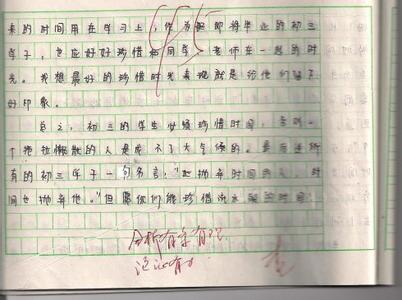 来的时间用在学习上，作为即将毕业的初三
学子，也应好好珍惜和同学、老师在一起的时
光。我想最好的珍惜时光表现就是给他们留下
好印象。
总之，初三的学生必须珍惜时间，
个拖拉懒散的人是成不了大气候的。最后送所
有的初三学子一句名言："抛弃时间的人，时
间也抛弃他。"但愿你们能珍惜流水般的时间
分析有条有理
论证有力